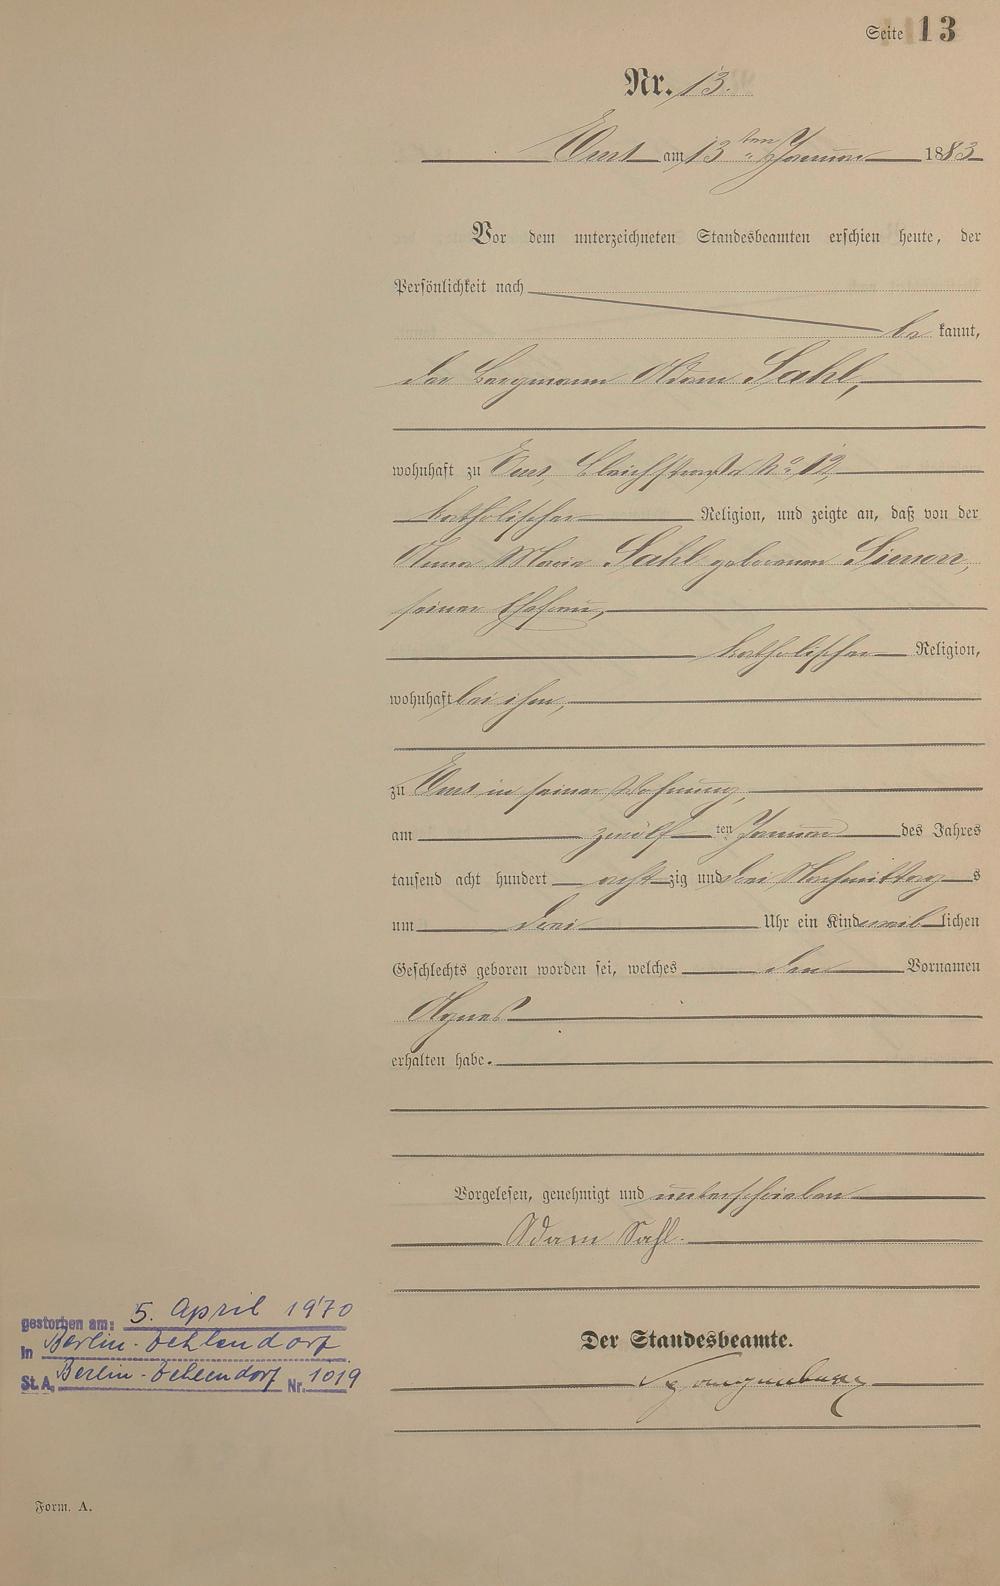 Seite 13
Nr. 13.
Ems am 13ten Januar 1883
Vor dem unterzeichneten Standesbeamten erschien heute, der
Persönlichkeit nach
be kannt,
der Bergmann Adam Sahl,
wohnhaft zu Ems, Bleichstraße No 12,
katholischer Religion, und zeigte an, daß von der
Anna Maria Sahl geborenen Simon,
seiner Ehefrau,
katholischer Religion,
wohnhaft bei ihm,
zu Ems in seiner Wohnung,
am zwölf ten Januar des Jahres
tausend acht hundert acht zig und drei Nachmittag s
um drei Uhr ein Kind weib lichen
Geschlechts geboren worden sei, welches den Vornamen
Agnes
erhalten habe.
Vorgelesen, genehmigt und unterschrieben
Adam Sahl.
Der Standesbeamte.
gestorben am: 5. April 1970
in Berlin-Zehlendorf
St. A. Berlin-Zehlendorf Nr. 1019
Form. A.